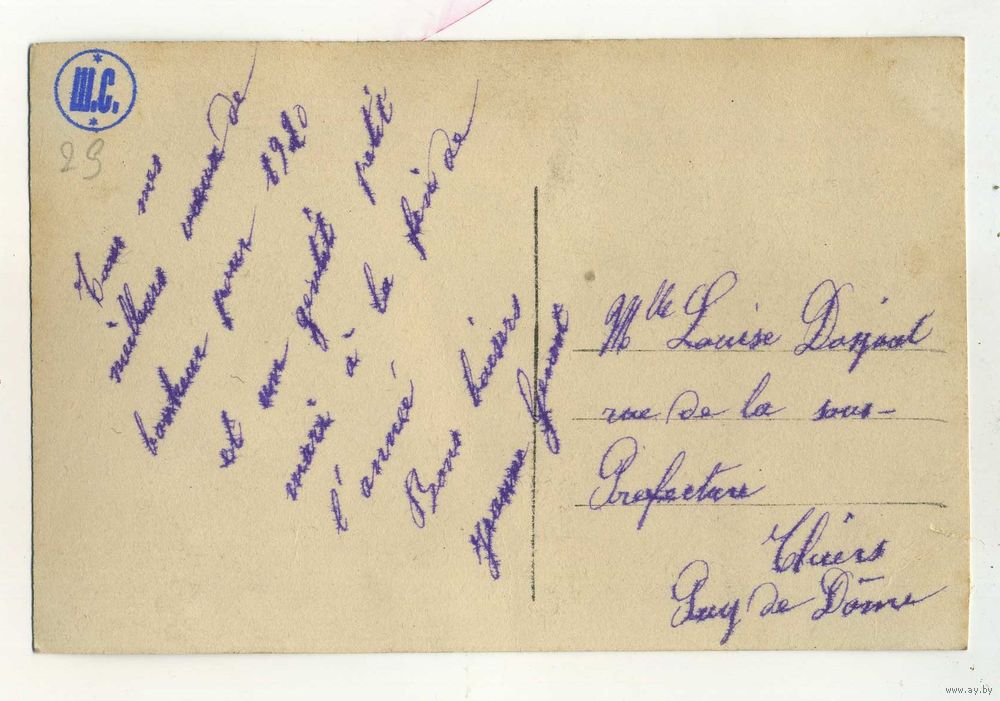 Ш.С.
29
Tous mes
meilleurs voeux de
bonheur pour 1920
et un gentil petit
mari à la fin de
l'année
Bons baisers
Jeanne
Mlle Louise
rue de la sous-
Préfecture
Thiers
Puy de Dôme
www.ay.by